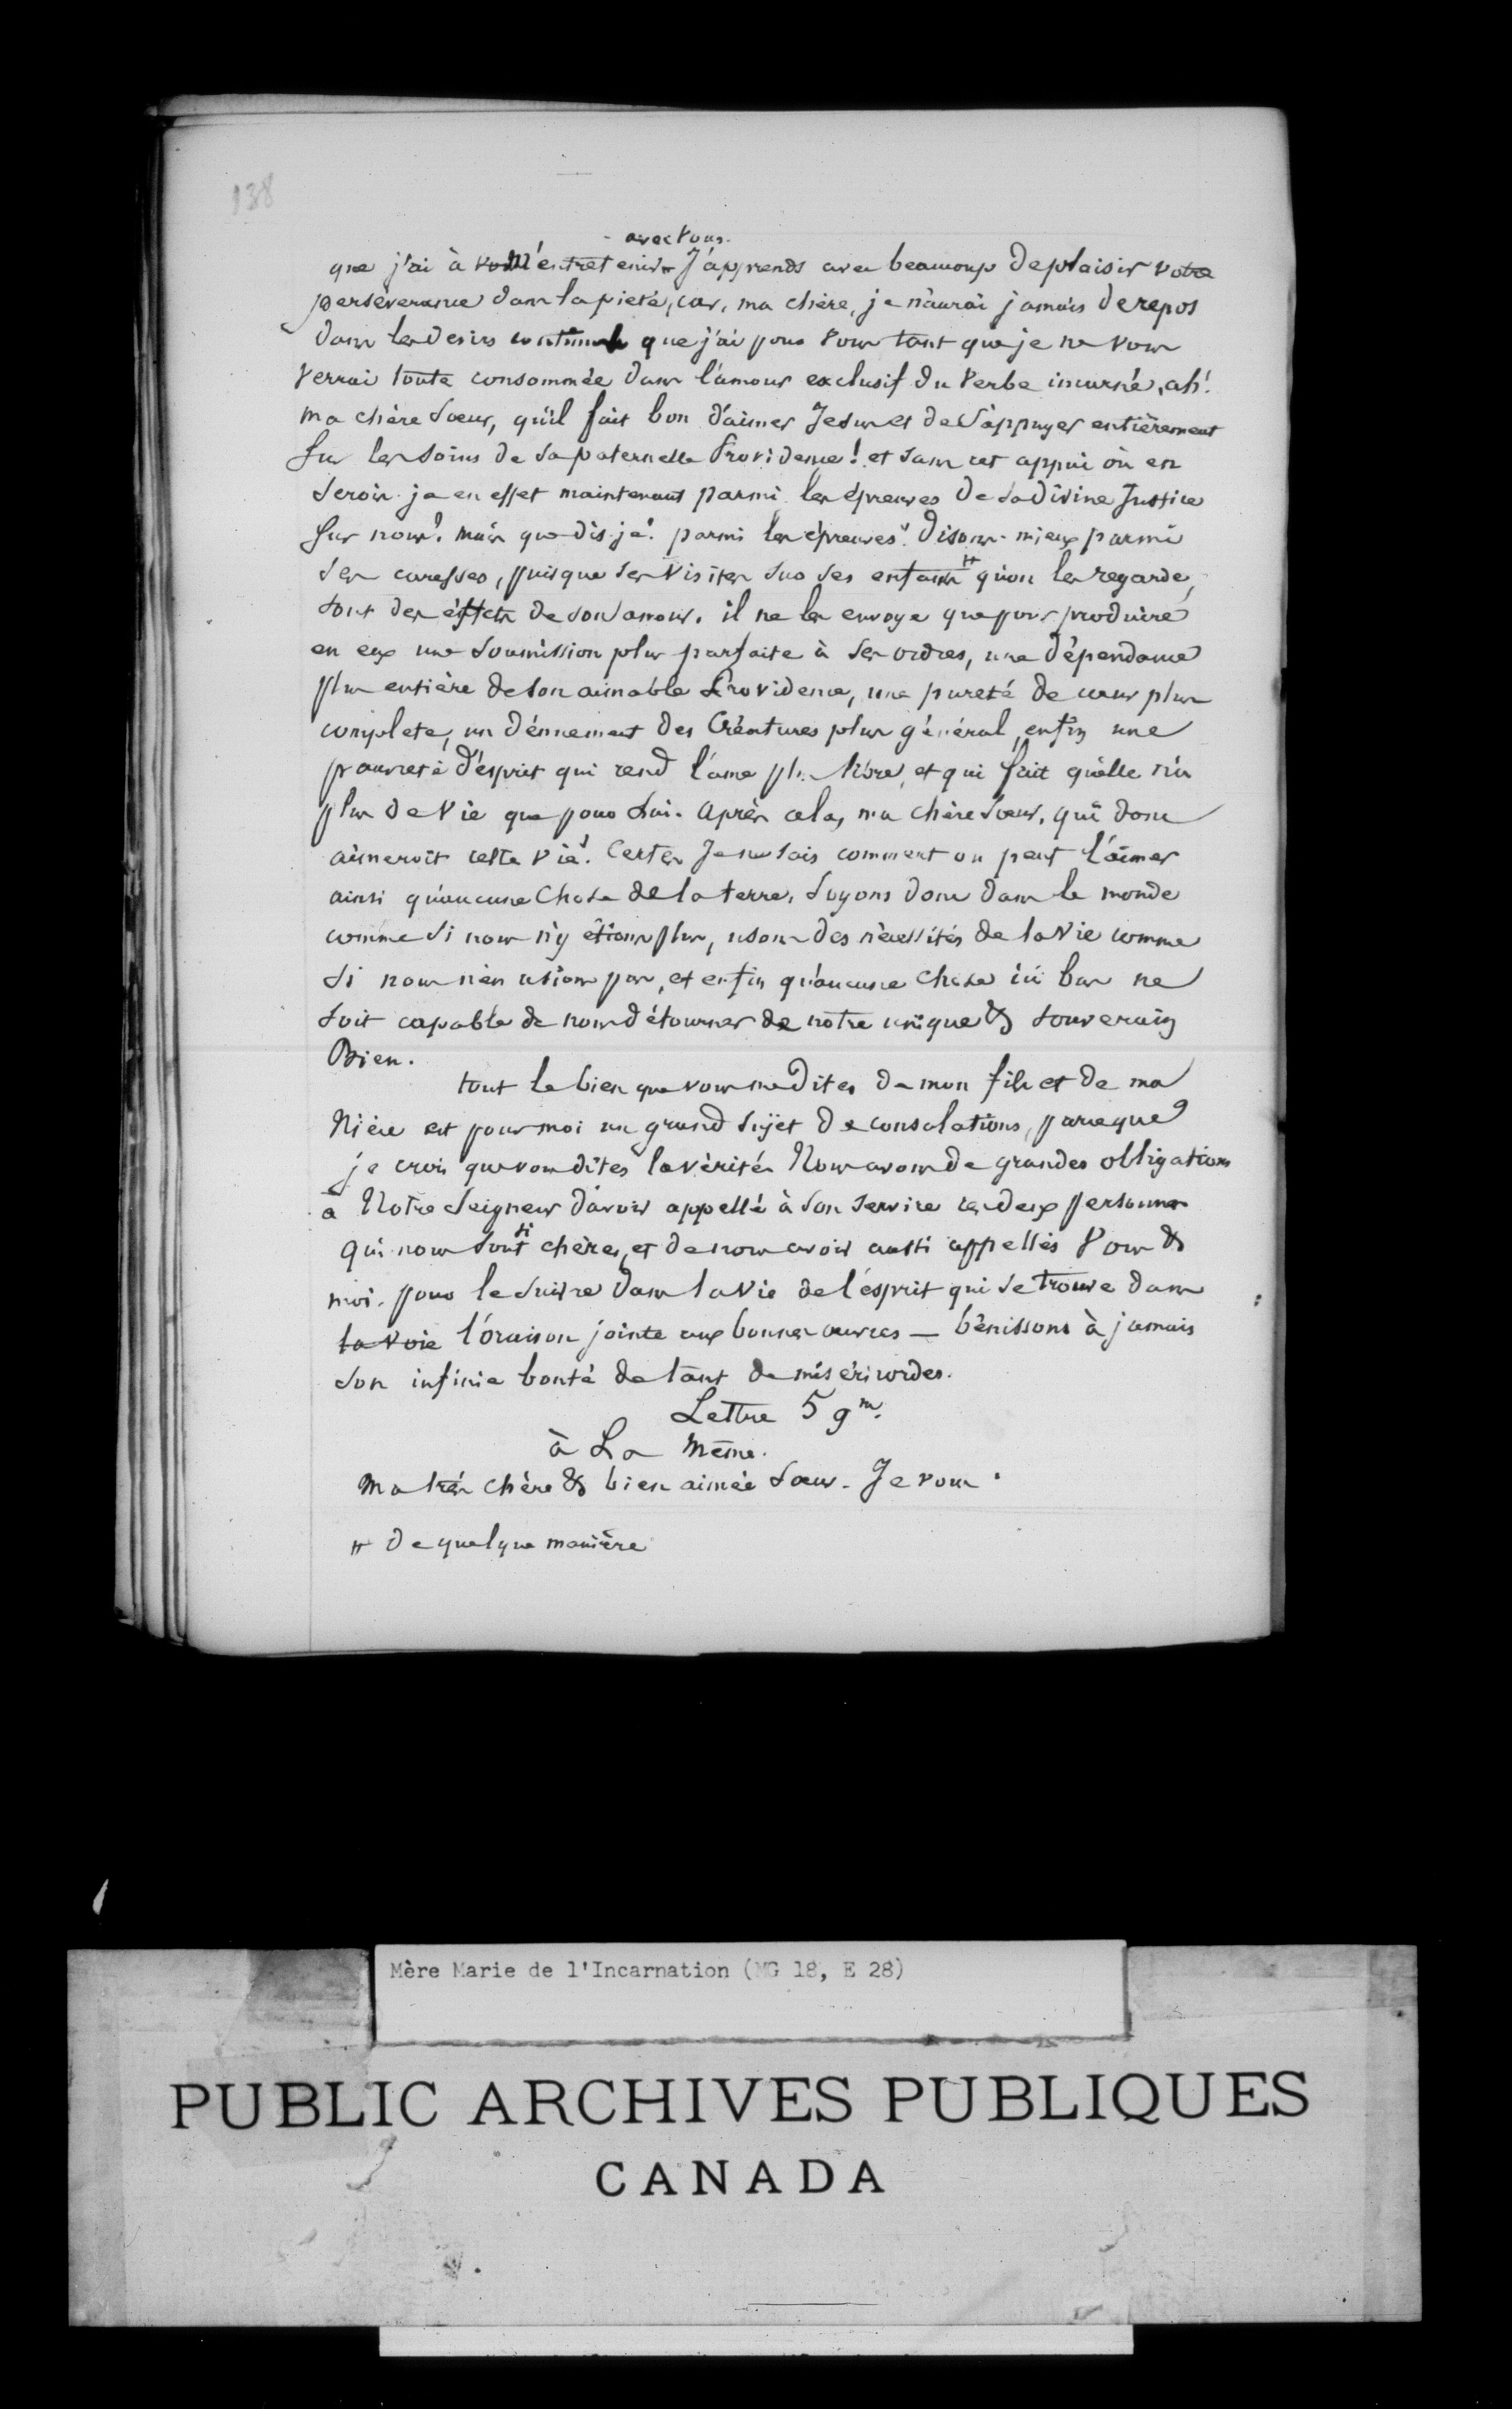 138
avec vous.
que j'ai à m'entretenir J'apprends avec beaucoup de plaisir votre
perséverance dans la pieté, car, ma chère, je n'aurai jamais de repos
dans les desirs continuels que j'ai pour vous tant que je ne vous
verrai toute consommée dans l'amour exclusif du Verbe incarné, ah!
ma chère Sœur, qu'il fait bon d'aimer Jesus et de s'appuyer entièrement
sur les soins de sa paternelle Providence! et sans cet appui où en
serois-je en effet maintenant parmi les épreuves de sa divine Justice
sur nous? mais que dis-je? parmi les épreuves! disons-mieux parmi
ses caresses, puisque ses visites sur ses enfans # qu'on les regarde,
sont des effets de son amour. il ne les envoye que pour produire
en eux une soumission plus parfaite à ses ordres, une dépendance
plus entière de son aimable Providence, une pureté de cœur plus
complete, un dénuement des Créatures plus général, enfin une
pauvreté d'esprit qui rend l'ame plus libre, et qui fait qu'elle n'a
plus de vie que pour Lui. Après cela, ma chère sœur, qui donc
aimeroit cette vie? Certes Je ne sais comment on peut l'aimer
ainsi qu'aucune Chose de la terre. Soyons donc dans le monde
comme si nous n'y étions plus, usons des nécessités de la vie comme
si nous n'en usions pas, et enfin qu'aucune chose ici bas ne
soit capable de nous détourner de notre unique & souverain
Bien.
tout le bien que vous me dites de mon fils et de ma
Nièce est pour moi un grand sujet de consolations, parceque
je crois que vous dites la vérité. Nous avons de grandes obligations
à Notre Seigneur d'avoir appellé à son service ces deux personnes
qui nous sont si chères, et de nous avoir aussi appellés vous &
moi. pour le suivre dans la vie de l'esprit qui se trouve dans
la voie l'oraison jointe aux bonnes œuvres — bénissons à jamais
son infinie bonté de tant de miséricordes.
Lettre 59m.
à La Même.
Ma très chère & bien aimée Sœur. Je vous
# de quelque manière
Mère Marie de l'Incarnation (MG 18, E 28)
PUBLIC ARCHIVES PUBLIQUES
CANADA